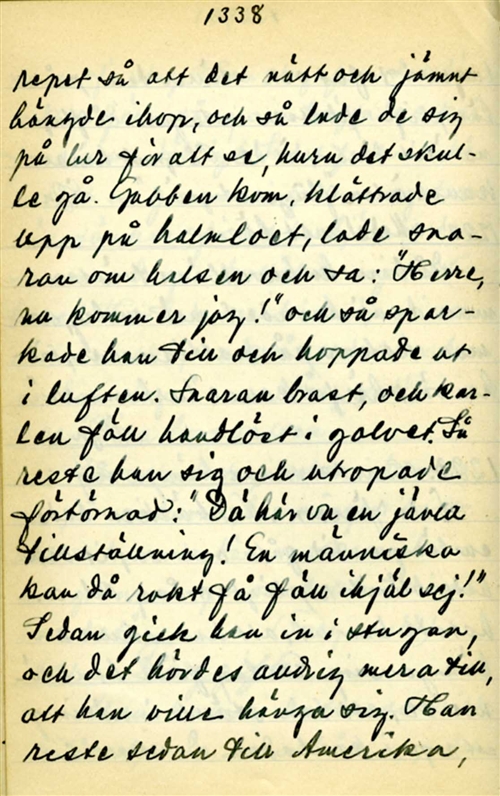 1338
repet så att det nätt och jämnt
hängde ihop, och så lade de sig
på lur för att se, huru det skul-
le gå. Gubben kom, klättrade
upp på halmloet, lade sna-
ran om halsen och sa: "Herre,
nu kommer jag!" och så spar-
kade han till och hoppade ut
i luften. Snaran brast, och kar-
len föll handlöst i golvet. Så
reste han sig och utropade
förtörnad: "Dä här va en jävla
tillställning! En människa
kan då rakt få fall ihjäl sej!"
Sedan gick han in i stugan,
och det hördes aldrig mera till,
att han ville hänga sig. Han
reste sedan till Amerika,